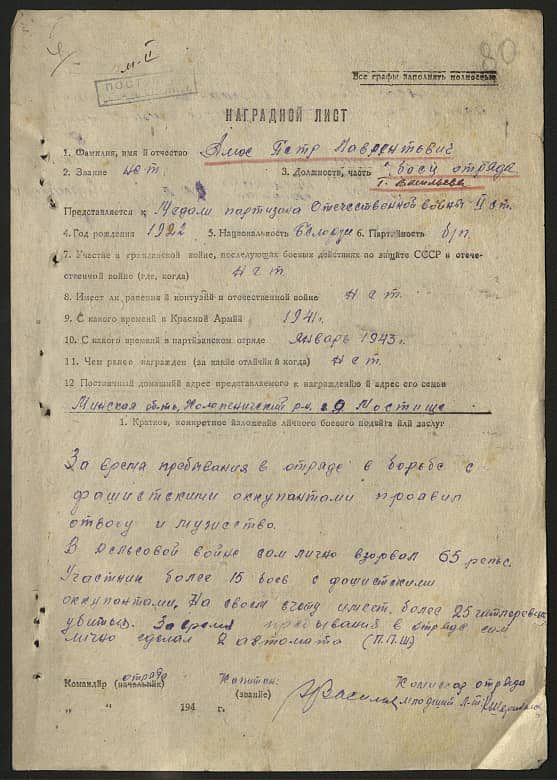 80
Все графы заполнять полностью
НАГРАДНОЙ ЛИСТ
1. Фамилия, имя й отчество Амос Петр Лаврентович
2. Звание нет. 3. Должность, часть боец отряда
т. Васильева
Представляется к Медали партизана Отечественной войны II ст.
4. Год рождения 1922 5. Национальность белорус 6. Партийность б/п.
7. Участие в гражданской войне, последующих боевых действиях по защите СССР и отече-
ственной войне (где, когда) Нет
8. Имеет ли ранения й контузий и отечественной войне нет.
9. С какого времений в Красной Армий 1941г.
10. С какого времений в партизанском отряде январь 1943г.
11. Чем ранее награжден (за какие отлийчия й когда) нет.
12 Постоянный домашнйй адрес представляемого к награждению й адрес его семьи
Минская обть, Холопеничский р-н, д Мостище
1. Краткое, конкретное изложение лйчного боевого подвйга йлй заслуг
За время пребывания в отряде в борьбе с
фашистскими оккупантами проявил
отвагу и мужество.
В рельсовой войне сам лично взорвал 65 рельс.
Участник более 15 боев с фашистскими
оккупантами. На своем счету имеет более 25 гитлеровцев
убитых. За время пребывания в отряде сам
лично сделал 2 автомата (П.П.Ш)
Командйр отряда (начальник) Капитан: (звание) Васильев
Комиссар отряда
младший л-т
" " 194 г.